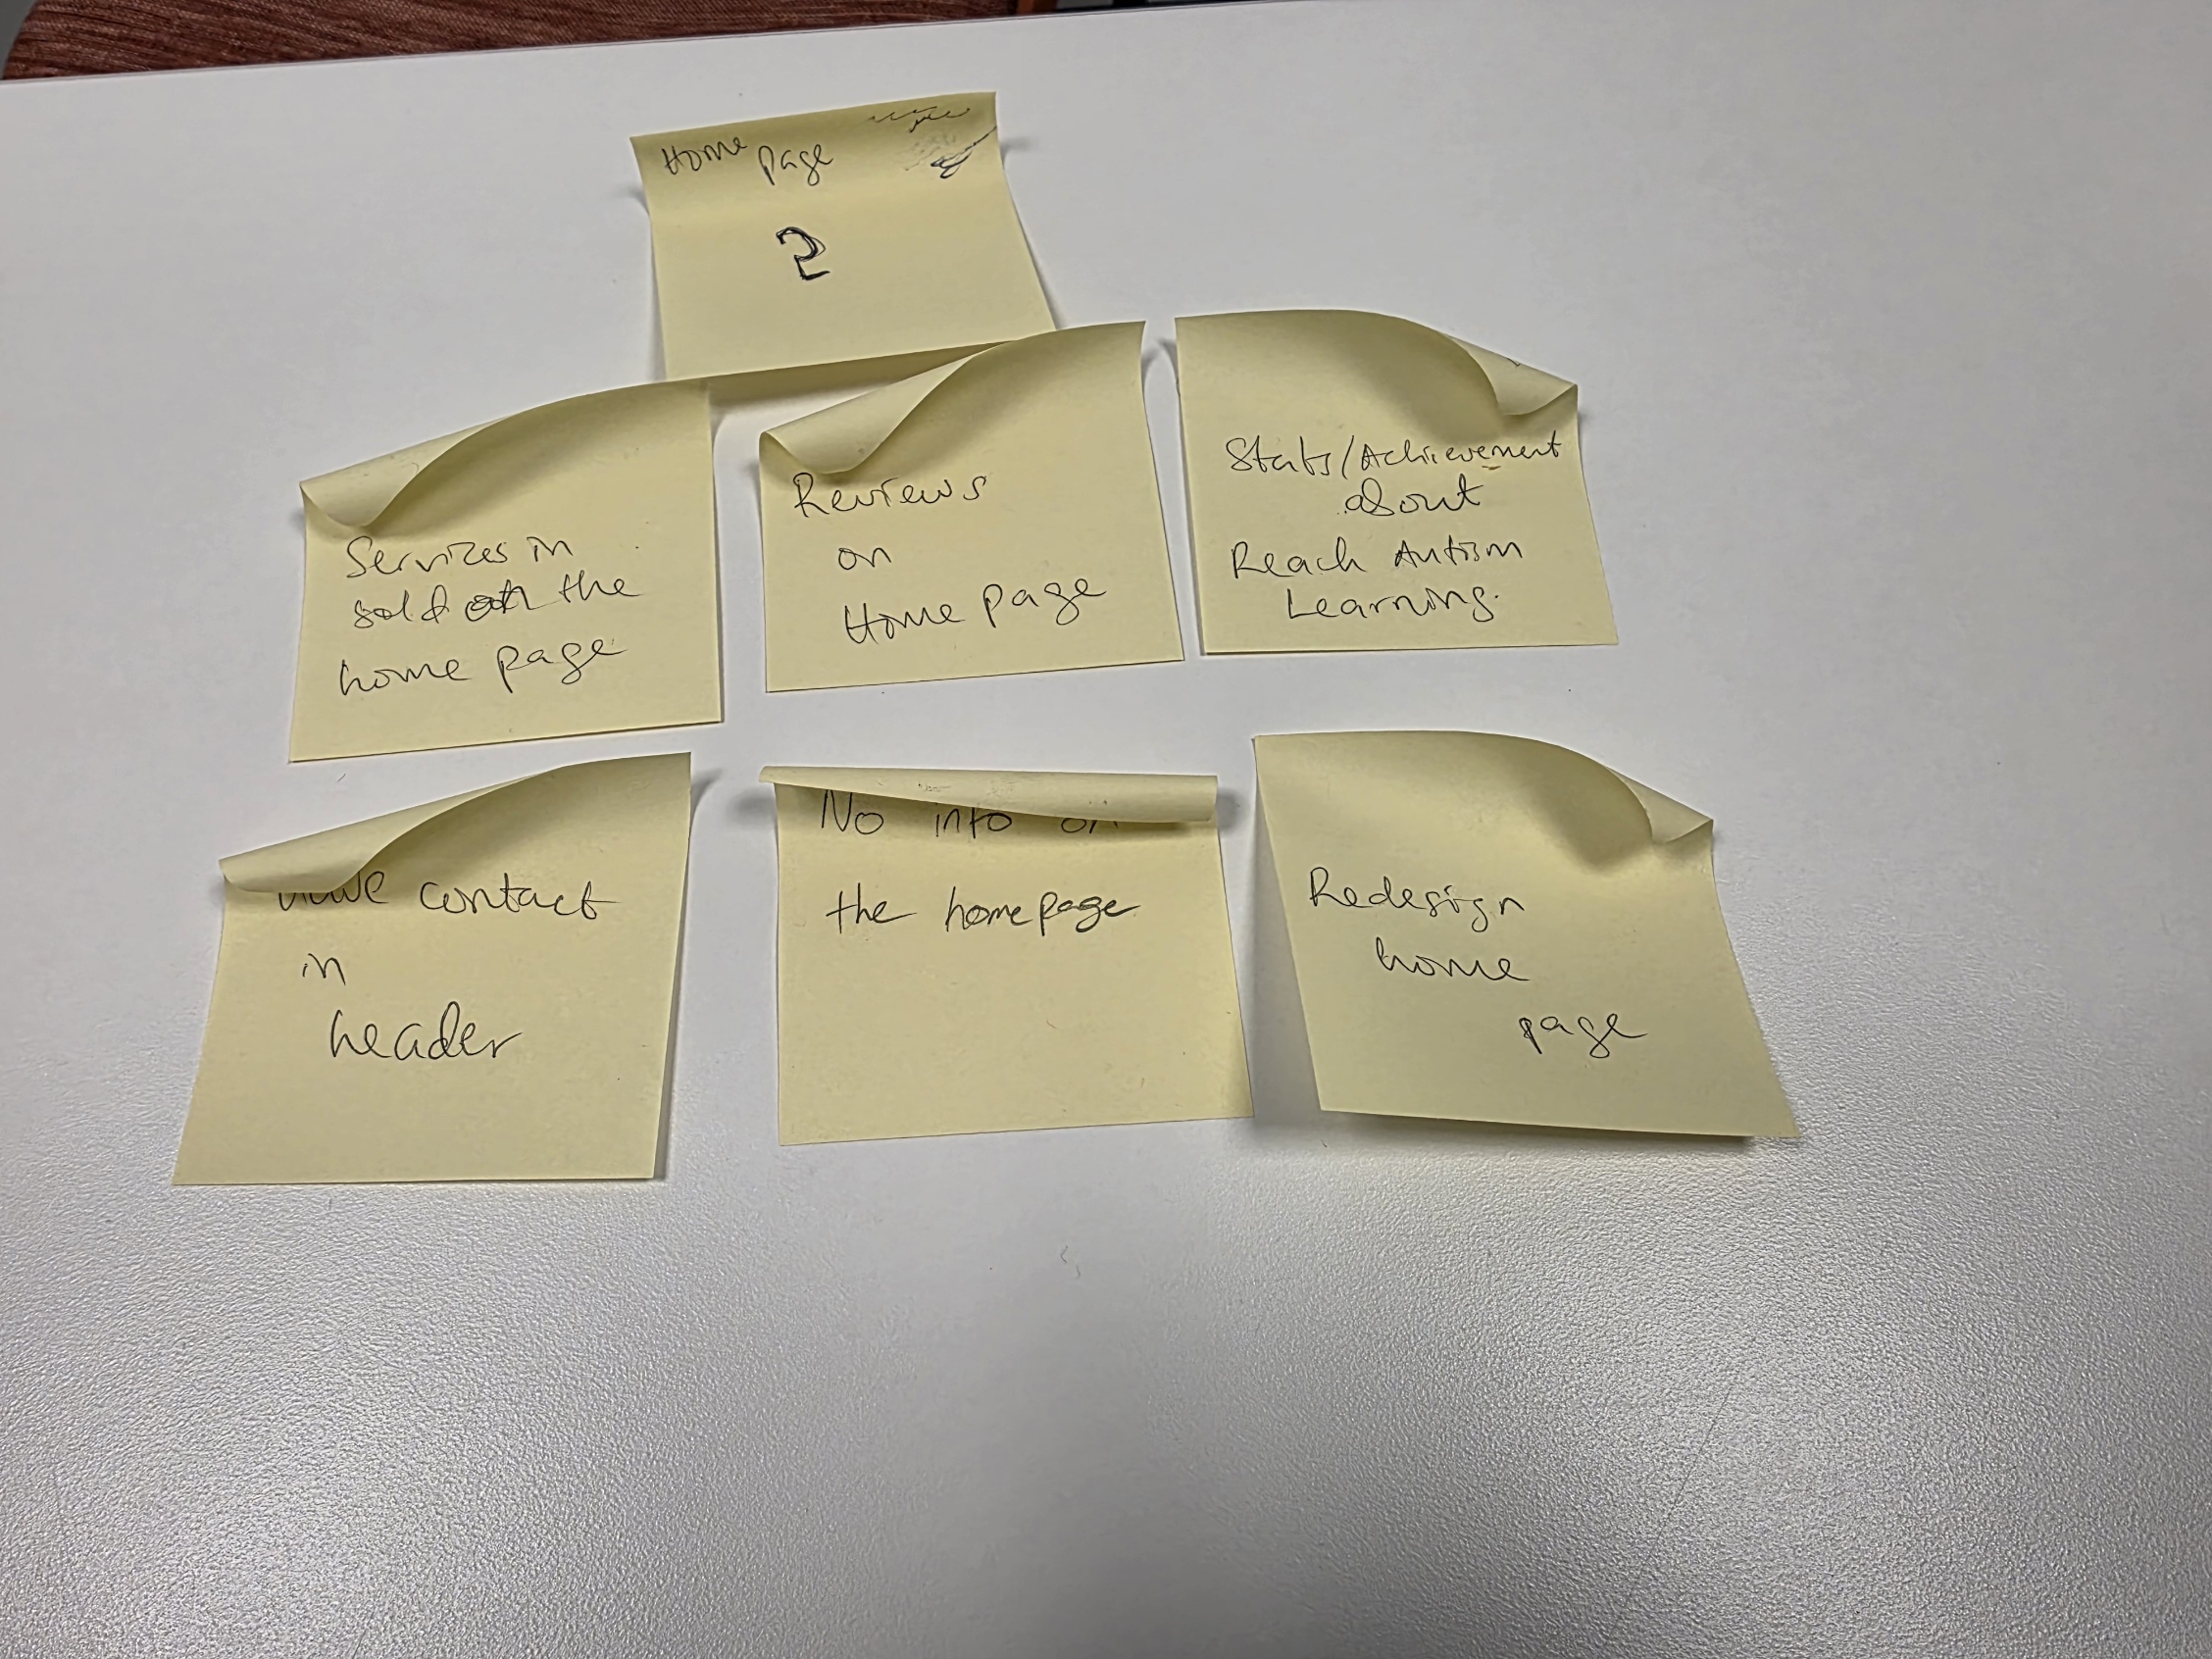 Home page
2
Services in
sold on the
home page
Reviews
on
Home page
Stats/Achievement
about
Reach Autism
Learning.
contact
in
header
No info on
the homepage
Redesign
home
page